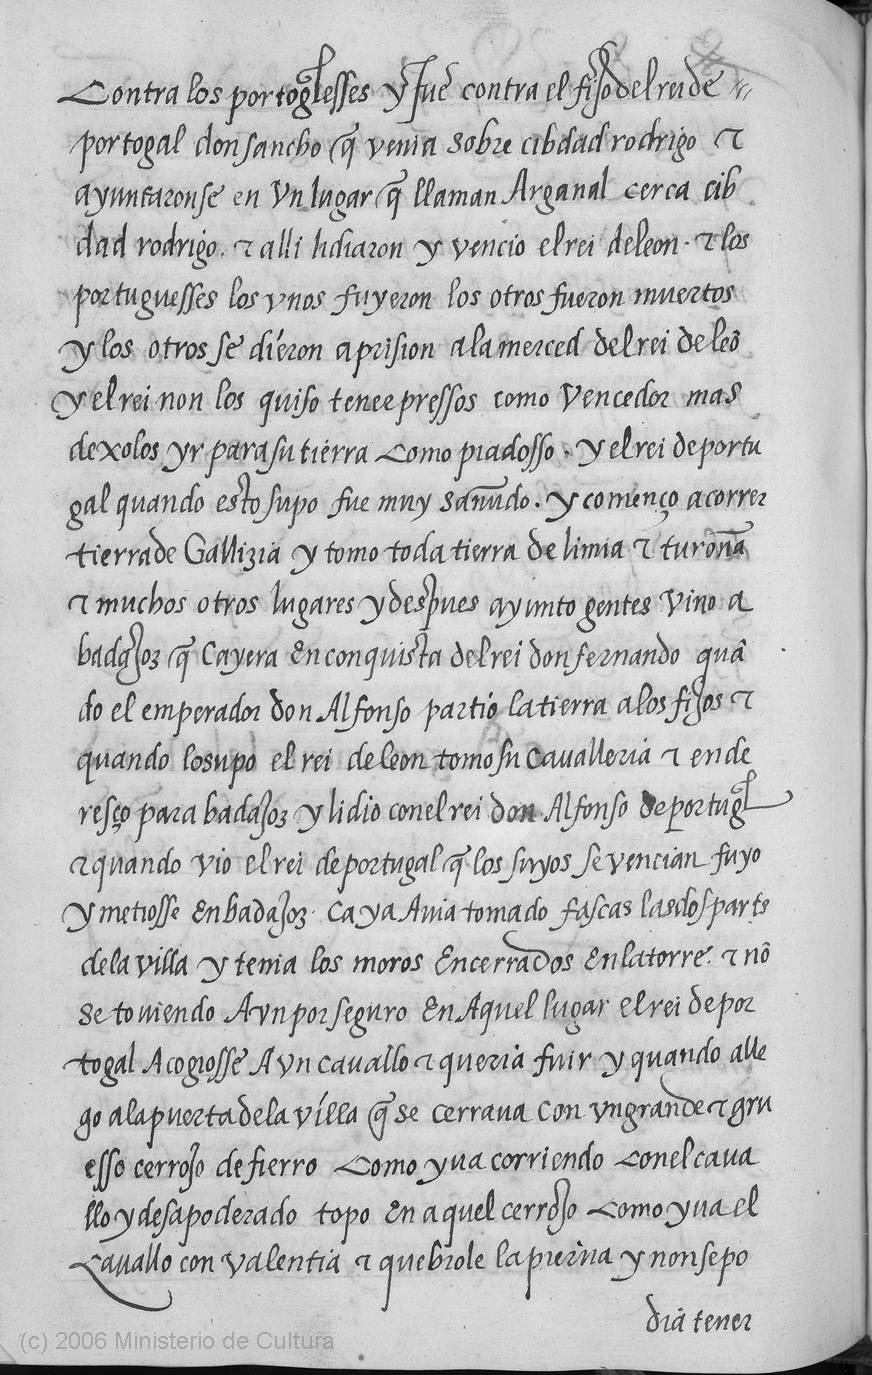 Contra los portogľesses y fue contra el fijo del rei de
portogal don sancho q̃ venia sobre cibdad rodrigo τ
ayuntaronse en vn lugar q̃ llaman Arganal cerca cib
dad rodrigo. τ alli lidiaron y vencio el rei de leon. τ los
portuguesses los vnos fuyeron los otros fueron muertos
y los otros se dieron a prision a la merced del rei de leõ
y el rei non los quiso tener pressos como vencedor mas
dexolos yr para su tierra Como piadosso. y el rei de portu
gal quando esto supo fue muy sañudo. y començo a correr
tierra de Gallizia y tomo toda tierra de limia τ turoña
τ muchos otros lugares y despues ayunto gentes vino a
badajoz q̃ Cayera En conquista del rei don fernando quã
do el emperador don Alfonso partio la tierra a los fijos τ
quando lo supo el rei de leon tomo su cavalleria τ ende
resço para badajoz y lidio con el rei don Alfonso de portugľ
τ quando vio el rei de portugal q̃ los suyos se vencian fuyo
y metiosse En badajoz. Ca ya Auia tomado fascas las dos parts
de la villa y tenia los moros Encerrados En la torre. τ nõ
se touiendo Avn por seguro En Aquel lugar el rei de por
togal Acogiosse A vn cavallo τ queria fuir y quando alle
go a la puerta de la villa q̃ se cerraua Con vn grande τ gru
esso cerrojo de fierro Como yua corriendo Con el caua
llo y desapoderado topo En aquel cerrojo Como yua el
Cauallo con valentia τ quebrole la pierna y non se po
dia tener
(c) 2006 Ministerio de Cultura